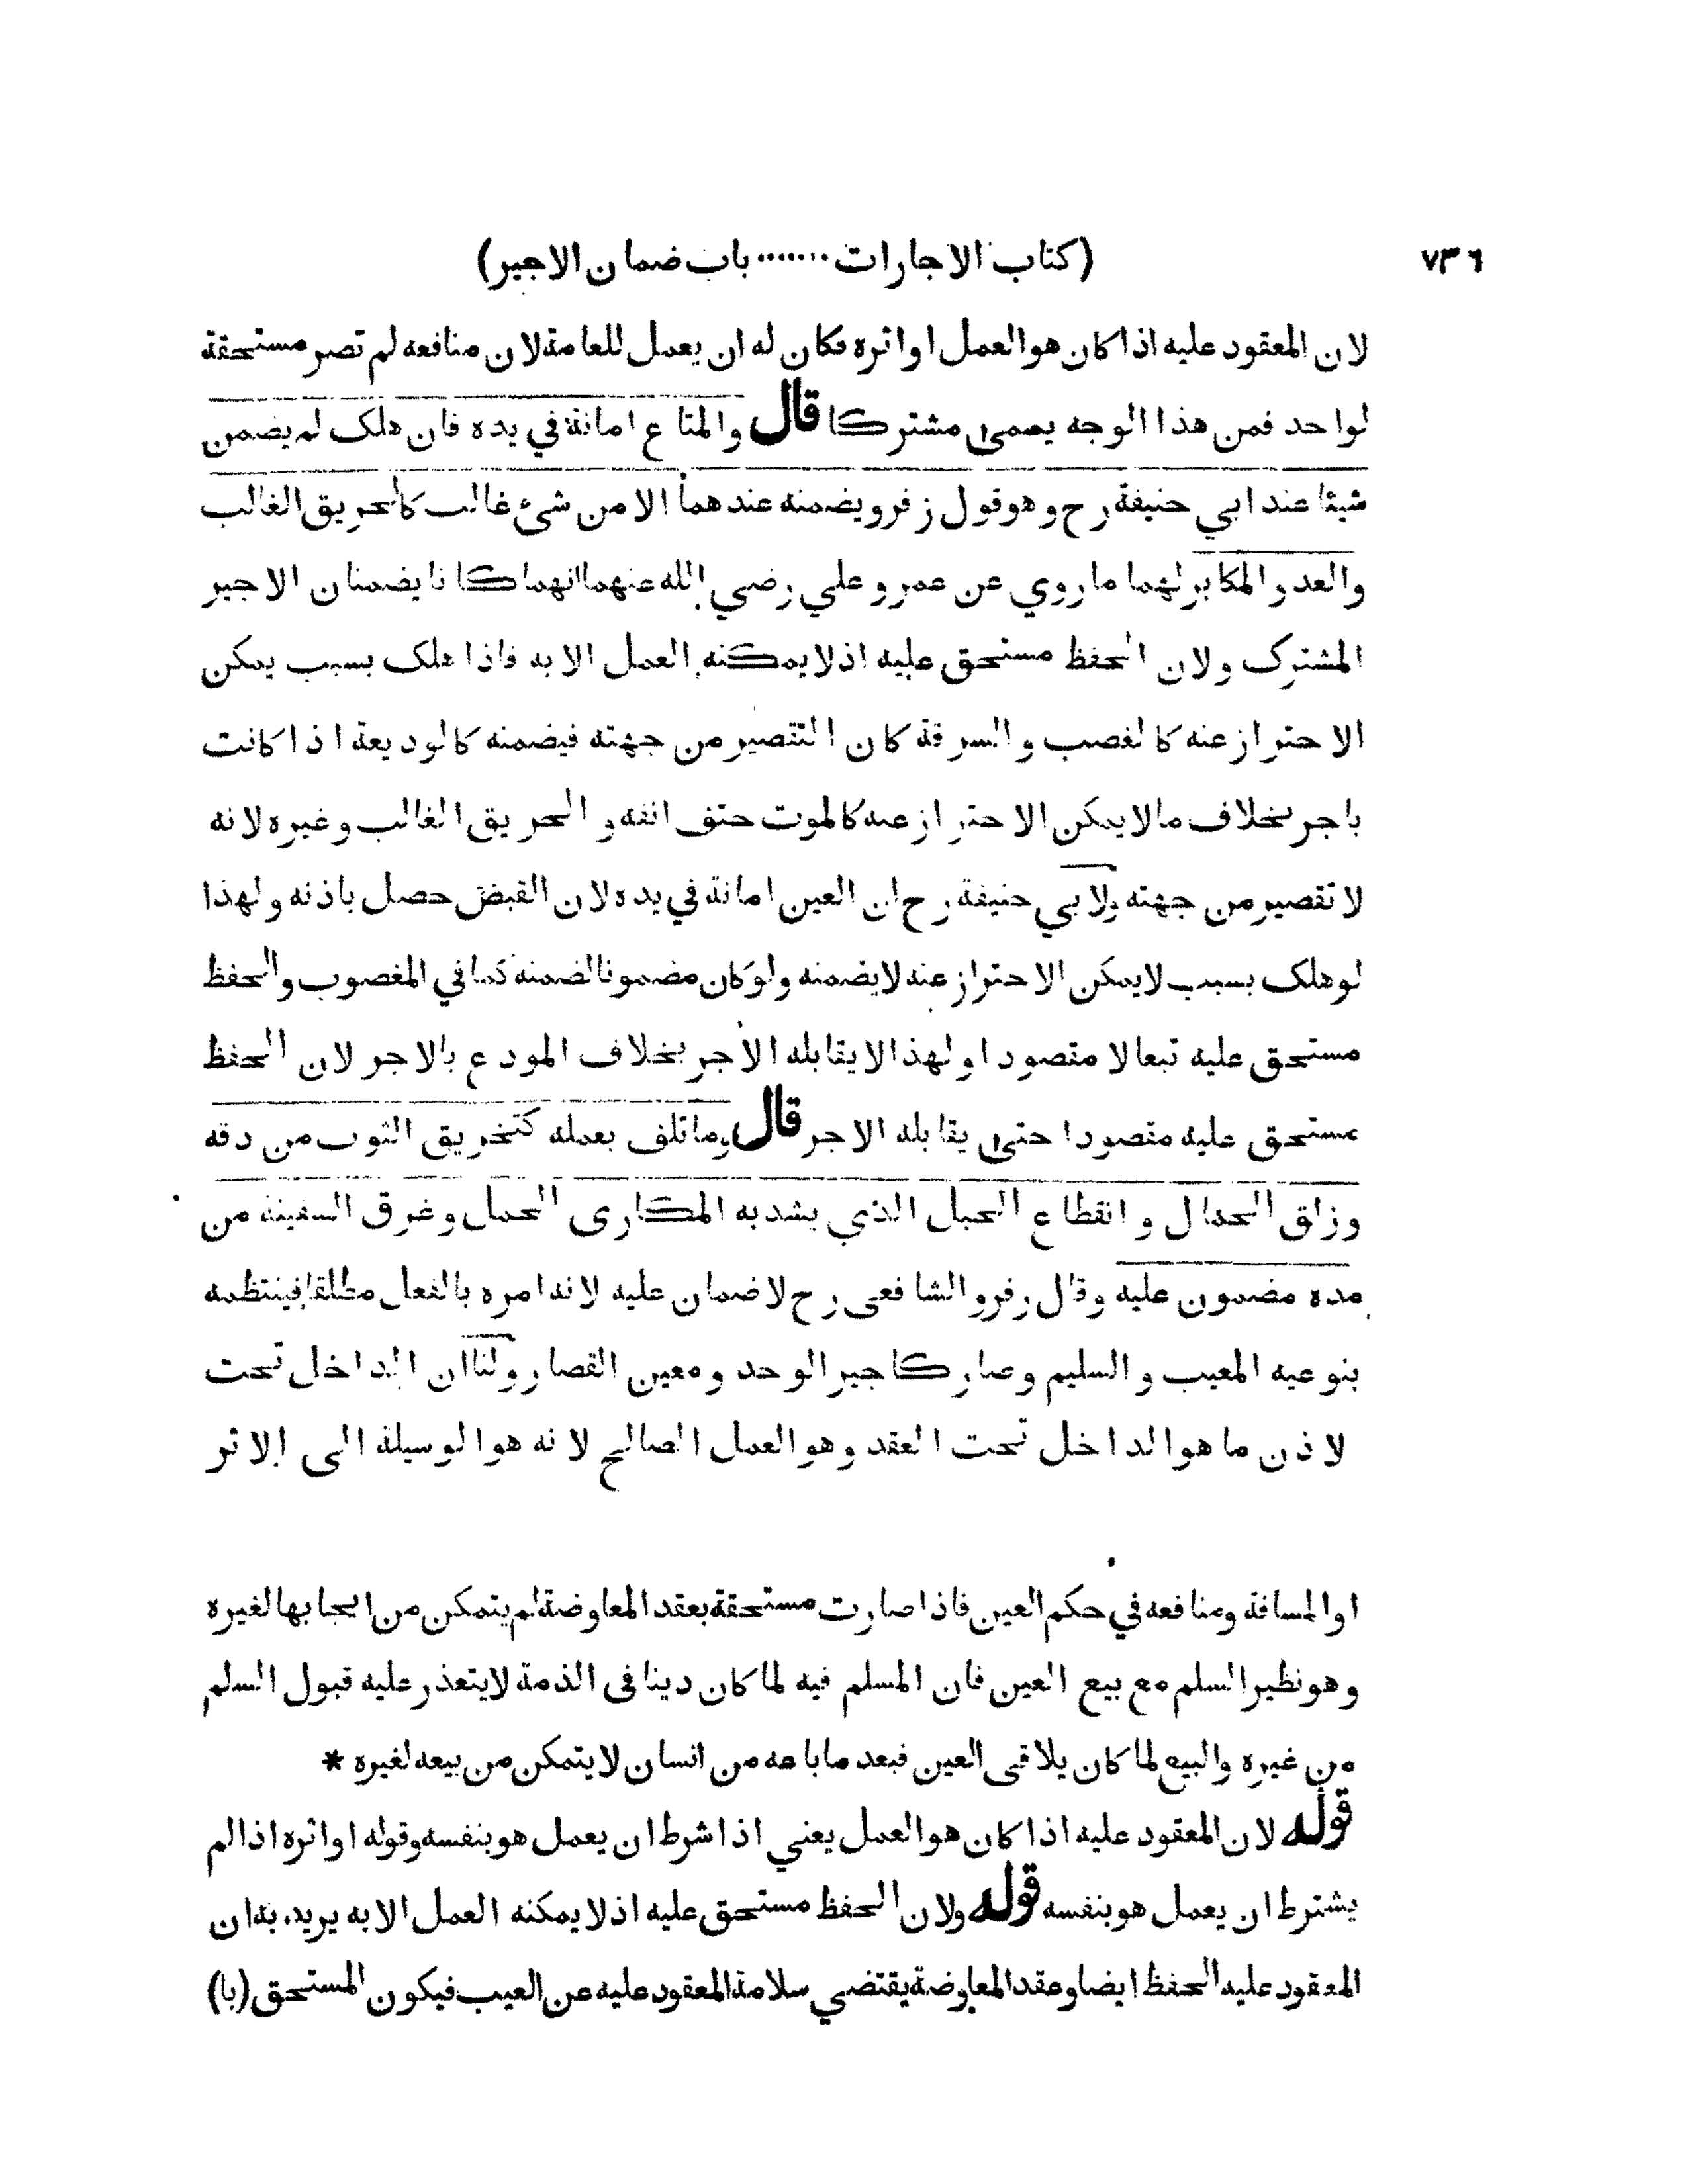 ٧٣٦ (كتاب الاجارات ······· باب ضمان الاجير)
لان المعقود عليه اذا كان هو العمل او اثره فكان له ان يعمل للعامة لان منافعه لم تصر مستحقة
لواحد فمن هذا الوجه يسمى مشتركا قال والمتاع امانة في يده فان هلك لم يضمن
شيئا عند ابي حنيفة رح وهو قول زفر ويضمنه عندهما الا من شئ غالب كالحريق الغالب
والعدو المكابر لهما ما روي عن عمر و علي رضي الله عنهما انهما كانا يضمنان الاجير
المشترك ولان الحفظ مستحق عليه اذ لا يمكنه العمل الا به فاذا هلك بسبب يمكن
الاحتراز عنه كالغصب والسرقة كان التقصير من جهته فيضمنه كالوديعة اذا كانت
باجر بخلاف مالا يمكن الاحتراز عنه كالموت حتف انفه و الحريق الغالب وغيره لانه
لا تقصير من جهته ولابي حنيفة رح ان العين امانة في يده لان القبض حصل باذنه ولهذا
لو هلك بسبب لا يمكن الاحتراز عنه لا يضمنه ولو كان مضمونا لضمنه كما في المغصوب والحفظ
مستحق عليه تبعا لا مقصودا ولهذا لا يقابله الاجر بخلاف المودع بالاجر لان الحفظ
مستحق عليه مقصودا حتى يقابله الاجر قال وما تلف بعمله كتخريق الثوب من دقه
وزلق الحمال و انقطاع الحبل الذي يشد به المكارى الحمل وغرق السفينة من
مده مضمون عليه وقال زفر والشافعى رح لا ضمان عليه لانه امره بالفعل مطلقا فينتظمه
بنوعيه المعيب و السليم وصار كاجير الوحد ومعين القصار ولنا ان الداخل تحت
لاذن ما هو الداخل تحت العقد وهو العمل الصالح لانه هو الوسيلة الى الاثر
او المسافة ومنافعه في حكم العين فاذا صارت مستحقة بعقد المعاوضة لم يتمكن من ايجابها لغيره
وهو نظير السلم مع بيع العين فان المسلم فيه لما كان دينا فى الذمة لا يتعذر عليه قبول السلم
من غيره والبيع لما كان يلاقى العين فبعد ما باعه من انسان لا يتمكن من بيعه لغيره *
قوله لان المعقود عليه اذا كان هو العمل يعني اذا شرط ان يعمل هو بنفسه وقوله او اثره اذا لم
يشترط ان يعمل هو بنفسه قوله ولان الحفظ مستحق عليه اذ لا يمكنه العمل الا به يريد به ان
المعقود عليه الحفظ ايضا وعقد المعاوضة يقتضي سلامة المعقود عليه عن العيب فيكون المستحق (با)